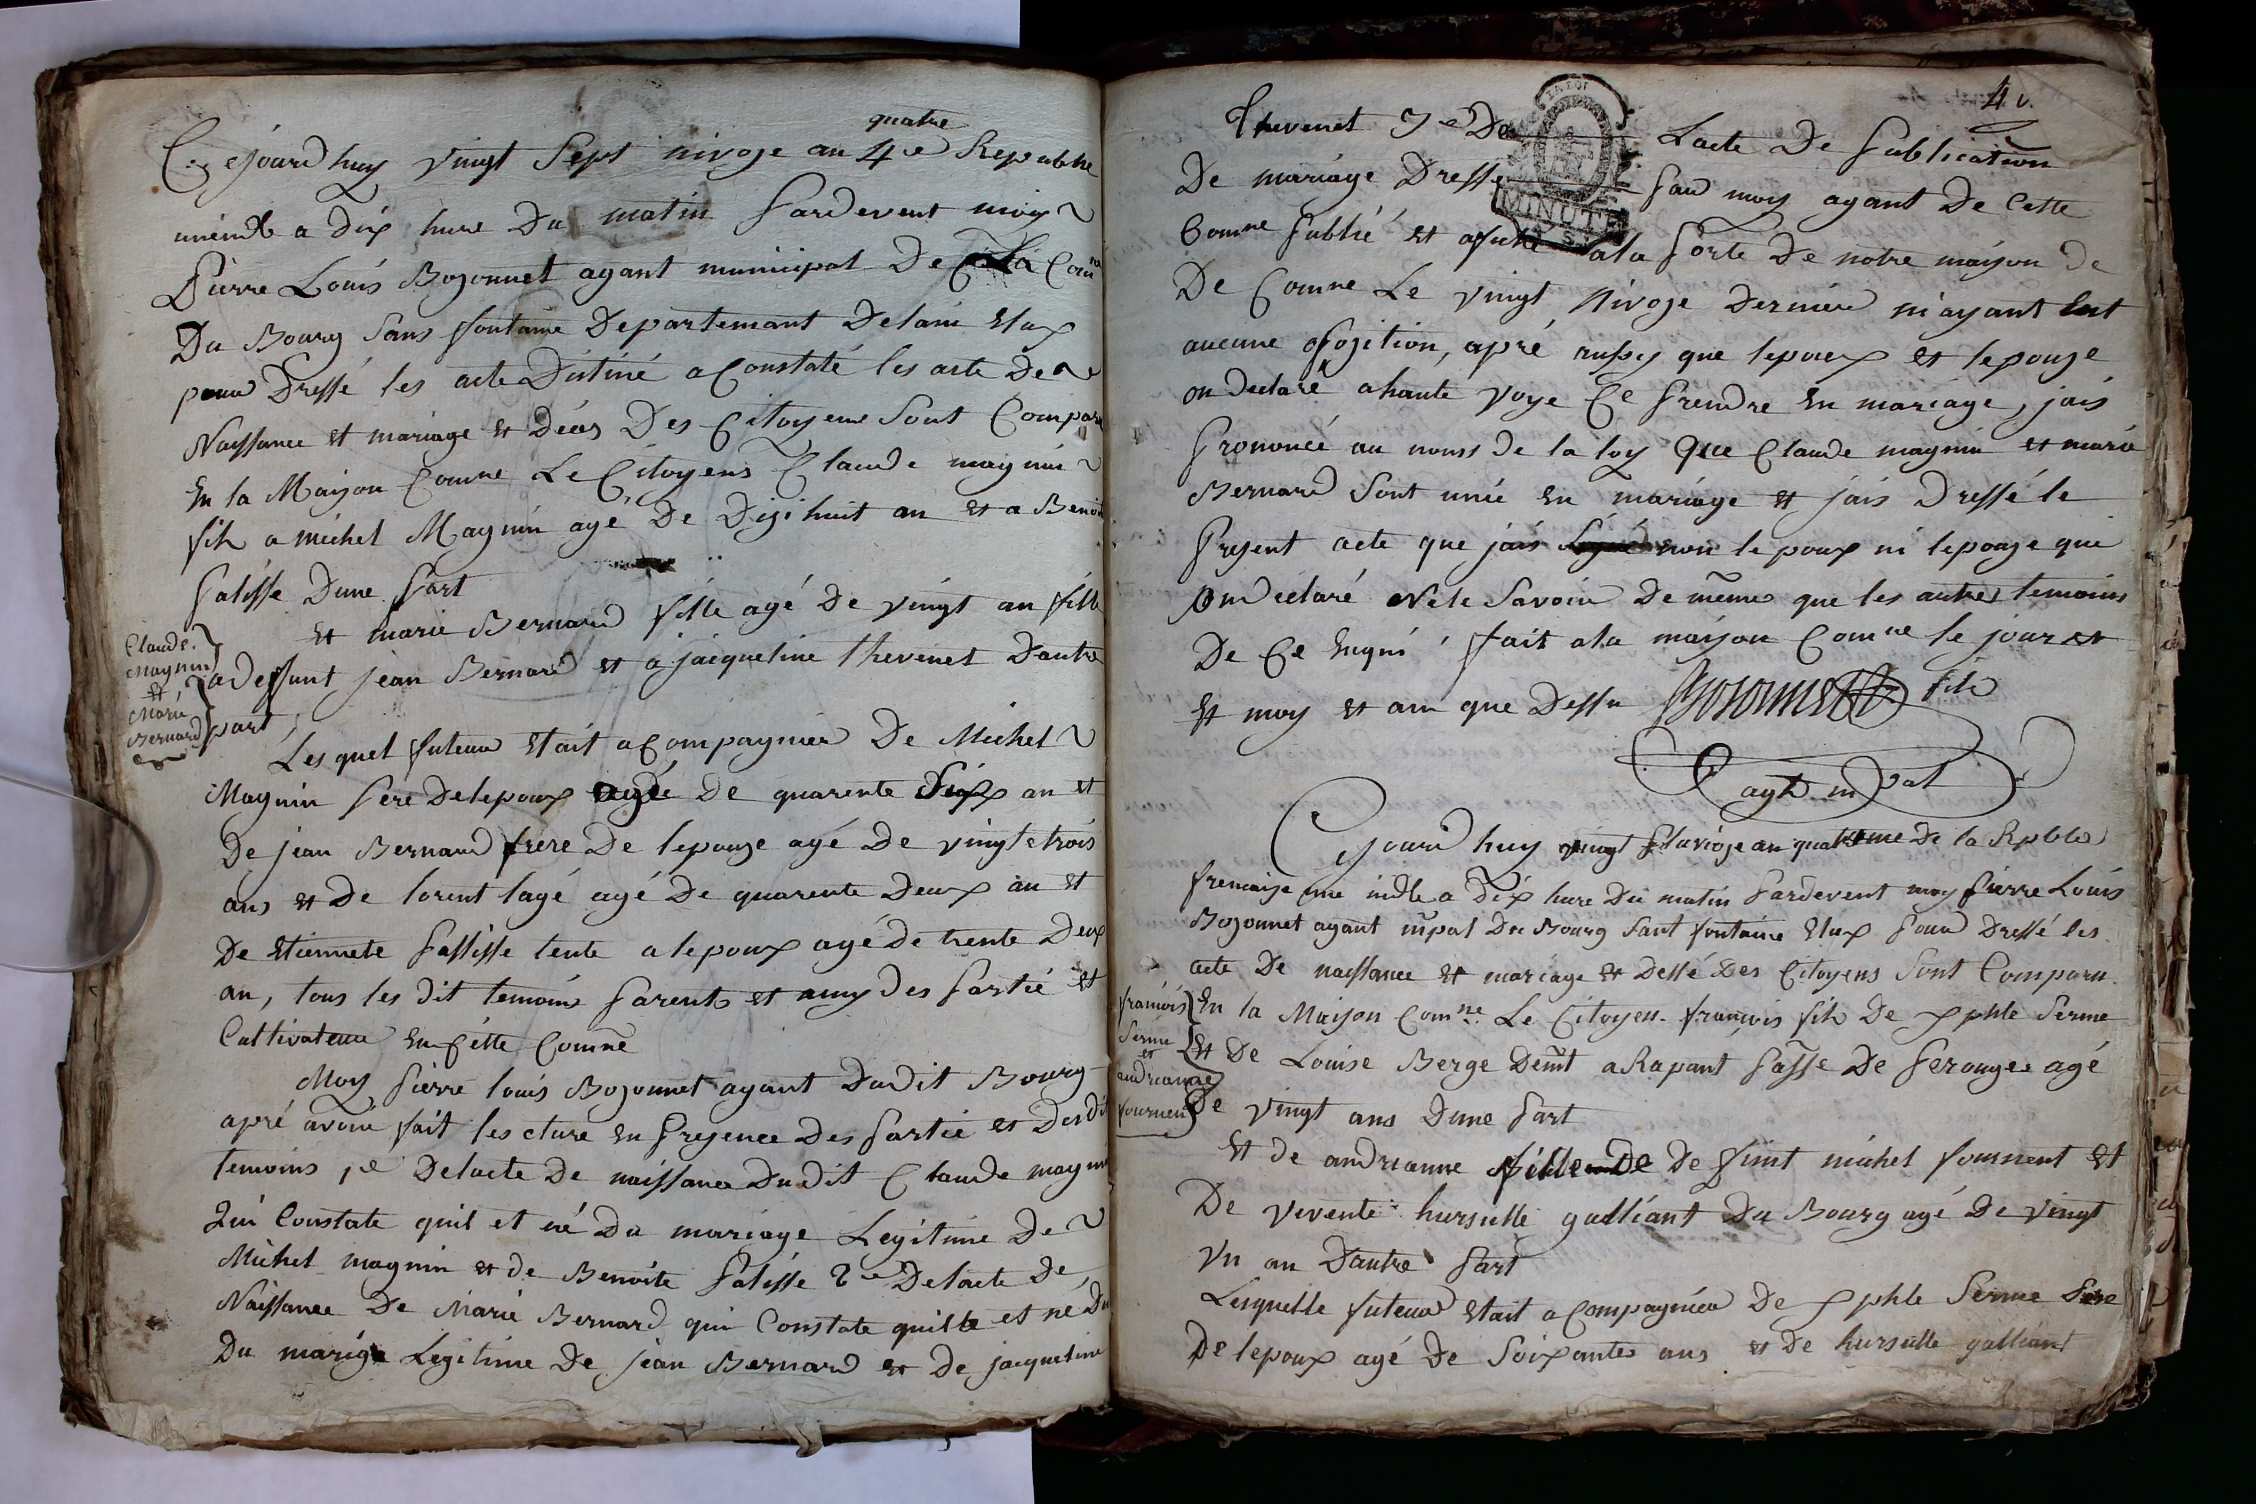 quatre
Ce jourd huy vingt Sept nivoze an 4e Republie
unéindle a dix hure Du matin pardevent moy
Pierre Louis Bozonnet agant municipal De Com
Du Bourg Sans fontaine Departemant Delain Elux
pour Dressé les acte Distiné a Constaté les acte De
Naissance et mariage et Décès Des Citoyens Sont Compar
En la Maison Comne Le Citoyens Claude magnin
fils a michel Magnin agé De Dizihuit an et a Benoi
palisse Dune part
Et marie Bernard fille agé De vingt an fille
a deffunt jean Bernard et a jacqueline thevenet Dautre
part
Claude
Magnin
et
Marie
Bernard
Lesquel futeur Etait acompagnier De Michel
Magnin pere Delepoux agé de quarente Six an et
De jean Bernard frere De lepouze agé De vingtetrois
ans et De lorent lagé agé De quarente Deux an et
De Etiennete pallisse tente a lepoux agé de trente Deux
an, tous les dit temoins parents et amy des partié et
Cultivateur En Cétte Comne
Moy pierre louis Bozonnet agant Dudit Bourg
apré avoir fait lescture En presence Des partie et Desdi
temoins 1e Delacte De naissance Dudit Claude magni
qui Constate quil et né du mariage Legitime De
Michel magnin et de Benoite palisse 2e Delacte De
Naissance De Marie Bernard qui Constate quille et né Du
Du marige Legitime De jean Bernard et de jacqueline
4 v.
thevenet 3e De Lacte De publication
De mariage Dressé par moy agant De Cette
Comne publié et afiché ala porte De notre maison de
De Comne Le vingt Nivoze Dernier niayant Eut
aucune opozition, apré aussy que lepoux et lepouze
on Declaré ahaute voye Ce prendre En mariage, jais
prononcé au noms de la loy que Claude magnin et marie
Bernard Sont unie En mariage et jais Dressé le
Present acte que jais non lepoux ni lepouze que
on déclaré Nele Savoir De même que les autres temoins
De Ce Enquis fait ala maison Comne le jour et
Et moy et an que Dessu Bozonnet fils
agt mpal
MINUTE
Cejourd huy vingt pluvioze an quatrieme De la Rpble
frencaize une indle a Dix hure Du matin pardevent moy pierre Louis
Bozonnet agant mpal Du Bourg Sant fontaine Elux pour Dressé les
acte De naissance et mariage et Dessé Des Citoyens Sont Comparu
En la Maison Comne Le Citoyen francois fils De Serme
Et De Louise Berge Demt aRapant passe De perouge agé
De vingt ans Dune part
francois
Serme
et
andrianne
fournen
Et de andrianne fille De De funt michel fournent Et
De vevente hursulle galliant Du Bourg agé De vingt
Vn an Dautre part
Lesquelle futeur Etait acompagnier De Serme pere
De lepoux agé De Soixantes ans et De hursulle galliant